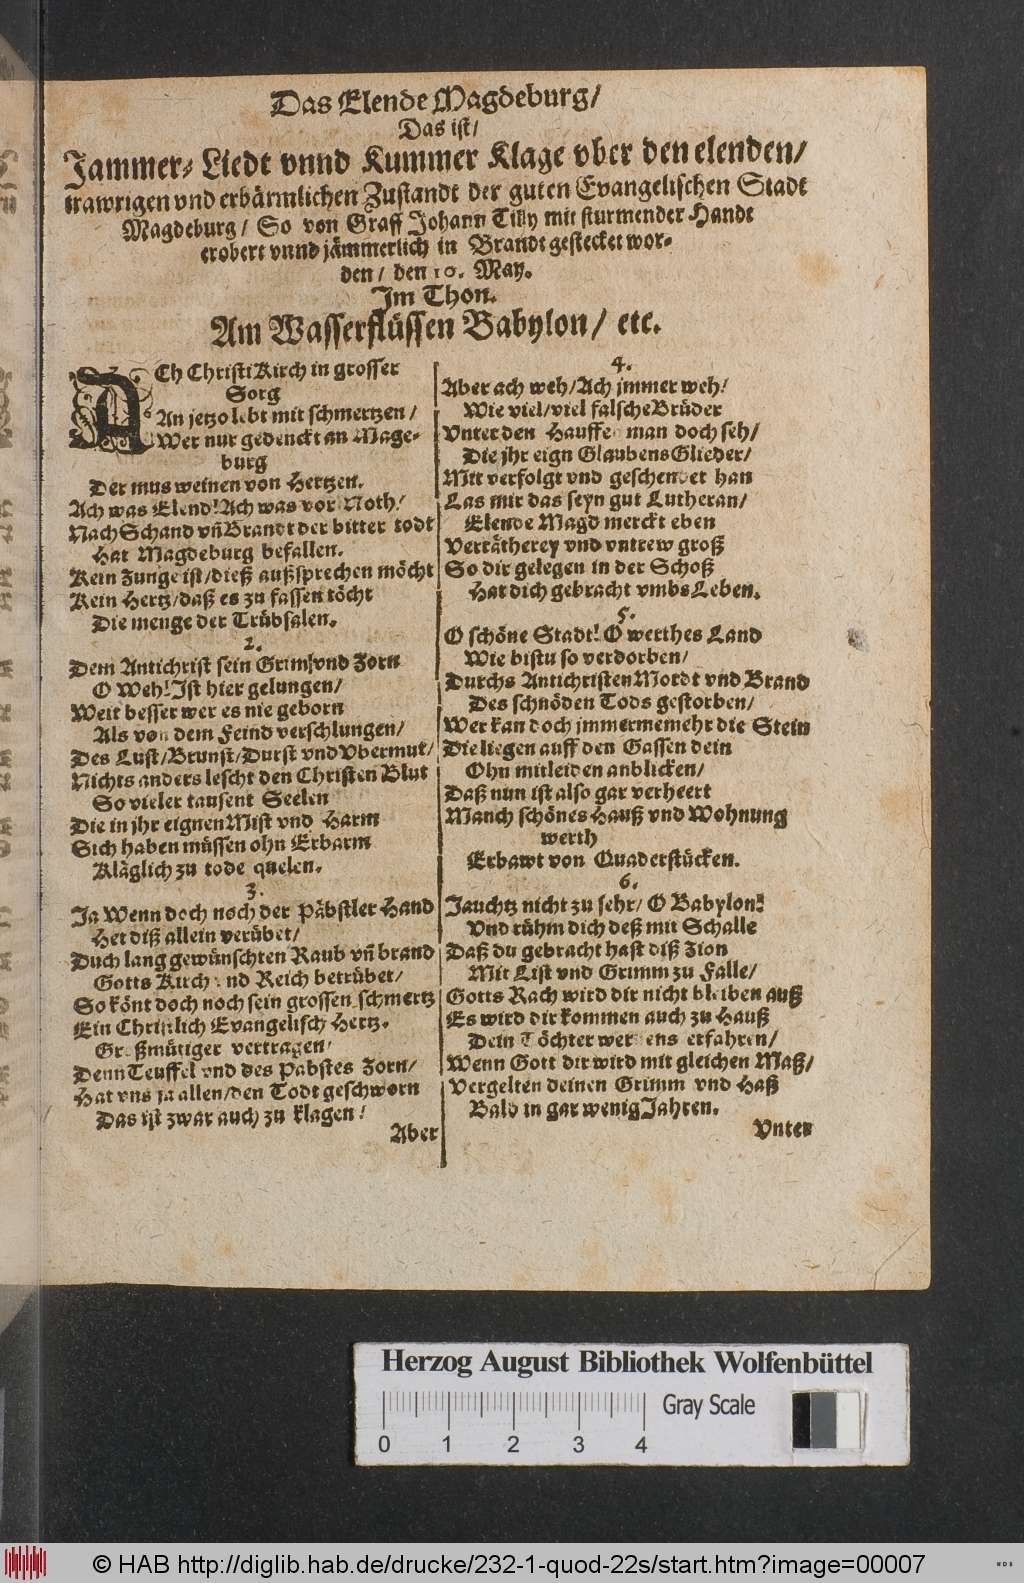 Das Elende Magdeburg/
Das ist/
Jammer- Liedt vnnd Kummer Klage vber den elenden/
trawrigen vnd erbärmlichen Zustandt der guten Evangelischen Stadt
Magdeburg/ So von Graff Johann Tilly mit sturmender Handt
erobert vnnd jämmerlich in Brandt gestecket wor-
den/ den 10. May.
Im Thon.
Am Wasserflüssen Babylon/ etc.
ACh Christi Kirch in grosser
Sorg
An jetzo lebt mit schmertzen/
Wer nur gedenckt an Mage-
burg
Der mus weinen von Hertzen.
Ach was Elend! Ach was vor Noth/
Nach Schand vn̄ Brandt der bitter todt
Hat Magdeburg befallen.
Kein Zunge ist/ dieß außsprechen möcht
Kein Hertz/ daß es zu fassen töcht
Die menge der Trübsalen.
2.
Dem Antichrist sein Grim̄ vnd Zorn
O Weh! Ist hier gelungen/
Weit besser wer es nie geborn
Als von dem Feind verschlungen/
Des Lust/ Brunst/ Durst vnd Vbermut/
Nichts anders lescht den Christen Blut
So vieler tausent Seelen
Die in jhr eignen Mist vnd Harm
Sich haben müssen ohn Erbarm
Kläglich zu tode quelen.
3.
Ja Wenn doch noch der Päbstler Hand
Het diß allein verübet/
Duch lang gewünschten Raub vn̄ brand
Gotts Kirch vnd Reich betrübet/
So könt doch noch sein grossen schmertz
Ein Christlich Evangelisch Hertz.
Großmütiger vertragen/
Denn Teuffel vnd des Pabstes Zorn/
Hat vns ja allen/ den Todt geschworn
Das ist zwar auch zu klagen!
Aber
4.
Aber ach weh/ Ach jmmer weh!
Wie viel/ viel falsche Brüder
Vnter den Hauffen man doch seh/
Die jhr eign Glaubens Glieder/
Mit verfolgt vnd geschendet han
Las mir das seyn gut Lutheran/
Elende Magd merckt eben
Verrätherey vnd vntrew groß
So dir gelegen in der Schoß
Hat dich gebracht vmbs Leben.
5.
O schöne Stadt! O werthes Land
Wie bistu so verdorben/
Durchs Antichristen Mordt vnd Brand
Des schnöden Tods gestorben/
Wer kan doch jmmermemehr die Stein
Die liegen auff den Gassen dein
Ohn mitleiden anblicken/
Daß nun ist also gar verheert
Manch schönes Hauß vnd Wohnung
werth
Erbawt von Quaderstücken.
6.
Jauchtz nicht zu sehr/ O Babylon!
Vnd rühm dich deß mit Schalle
Daß du gebracht hast diß Zion
Mit List vnd Grimm zu Falle/
Gotts Rach wird dir nicht bleiben auß
Es wird dir kommen auch zu Hauß
Dein Töchter werdens erfahren/
Wenn Gott dir wird mit gleichen Maß/
Vergelten deinen Grimm vnd Haß
Bald in gar wenig Jahren.
Vnter
Herzog August Bibliothek Wolfenbüttel
0 1 2 3 4
Gray Scale
© HAB http://diglib.hab.de/drucke/232-1-quod-22s/start.htm?image=00007